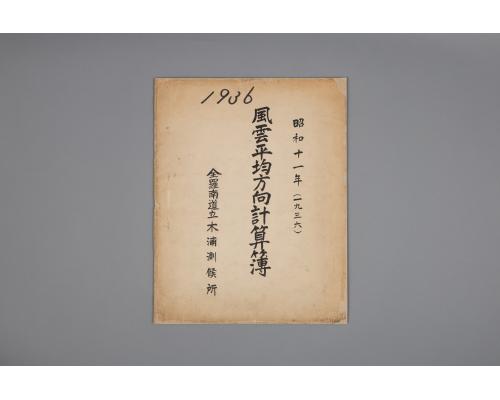 1936
昭和十一年(一九三六)
風雲平均方向計算簿
全羅南道立木浦測候所